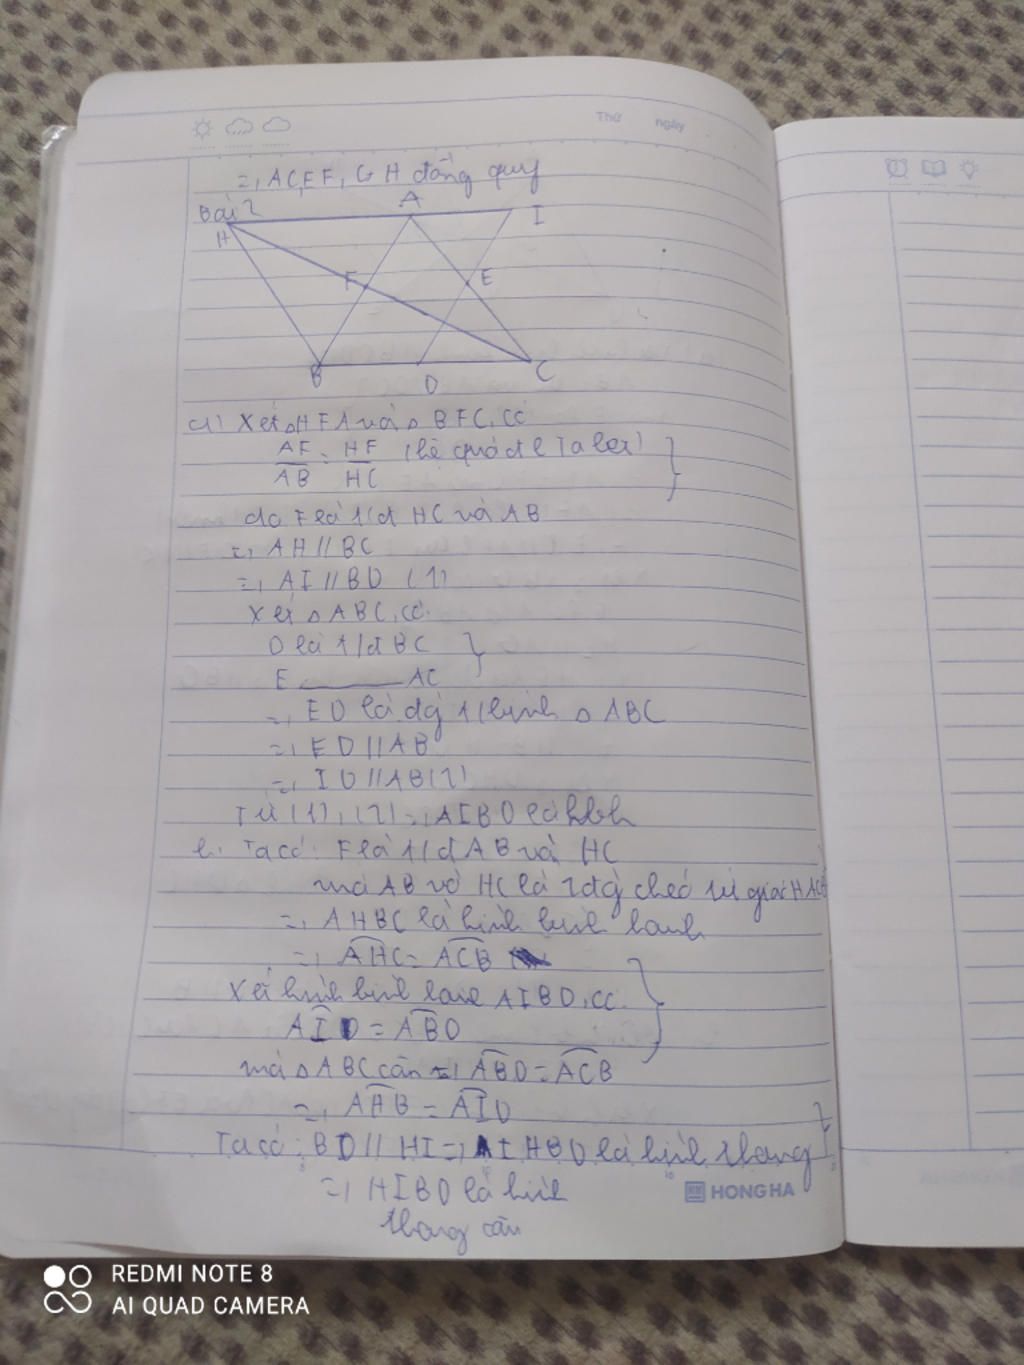 Thứ ngày
=, AC, EF, GH đồng quy
Bài 2
A
I
H
F
E
B
D
C
a) Xét △HFA và △BFC, có
AF/AB = HF/HC (hệ quả đl Ta let)
do F là t/đ HC và AB
=, AH // BC
=, AI // BD (1)
Xét △ABC, có
D là t/đ BC
E ——— AC
=, ED là đg t/bình △ABC
=, ED // AB
=, ID // AB (2)
Từ (1), (2) =, AIBD là hbh
b, Ta có: F là t/đ AB và HC
mà AB và HC là 2 đg chéo tứ giác HACB
=, AHBC là hình bình hành
=, AHC = ACB
Xét hình bình hành AIBD, có
AID = ABD
mà △ABC cân =, ABD = ACB
=, AHB = AID
Ta có: BD // HI =, HBD là hình thang
=, HIBD là hình
thang cân
HONG HA
REDMI NOTE 8
AI QUAD CAMERA